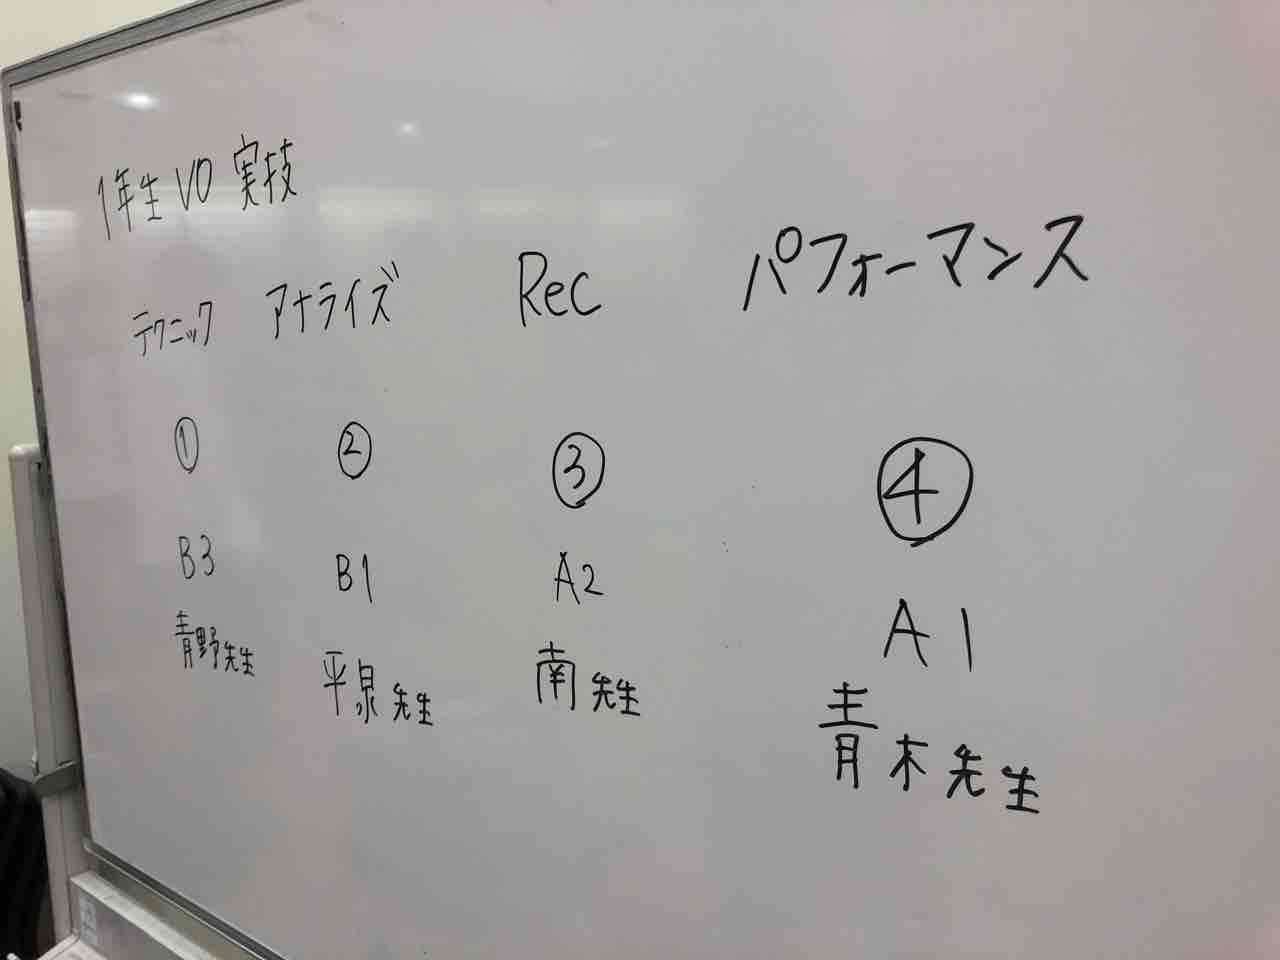 1年生 VO 実技
テクニック アナライズ Rec パフォーマンス
① ② ③ ④
B3 B1 A2 A1
青野先生 平泉先生 南先生 青木先生